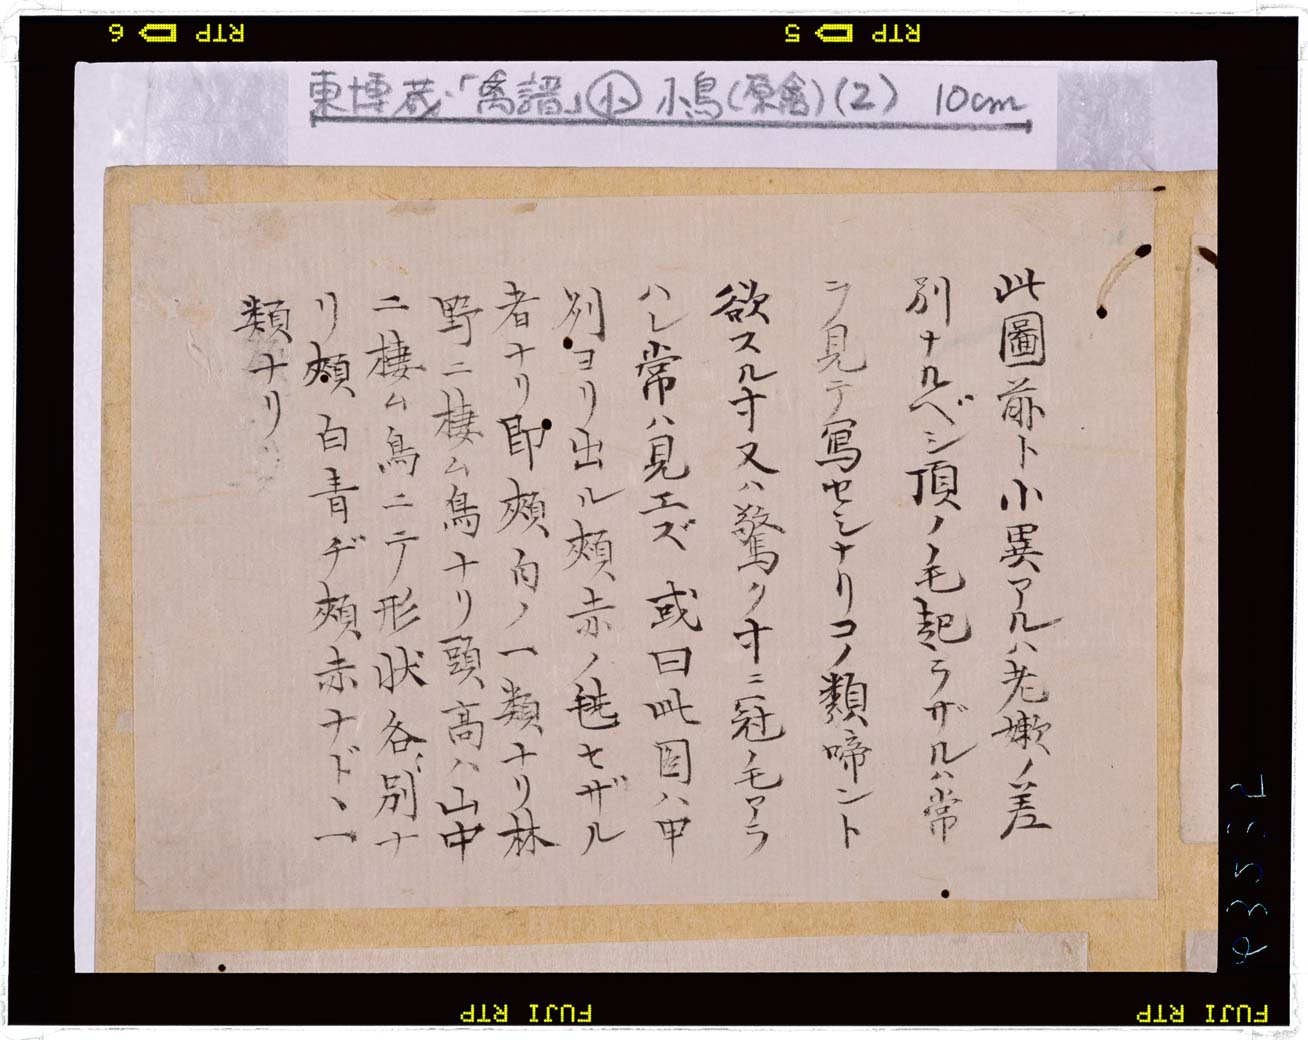 東博蔵「禽譜」㊥小鳥(原禽)(2) 10cm
此圖前ト小異アルハ老嫩ノ差
別ナルベシ頂ノ毛起ラザルハ常
ヲ見テ写セシナリコノ類啼ント
欲スル寸又ハ驚ク寸ニ冠ノ毛アラ
ハレ常ハ見エズ或曰此図ハ甲
別ヨリ出ル頰赤ノ毪セザル
者ナリ即頰白ノ一類ナリ林
野ニ棲ム鳥ナリ頭高ハ山中
ニ棲ム鳥ニテ形状各別ナ
リ頰白青ヂ頰赤ナド丶一
類ナリ
RTP 6
RTP 5
FUJI RTP
FUJI RTP